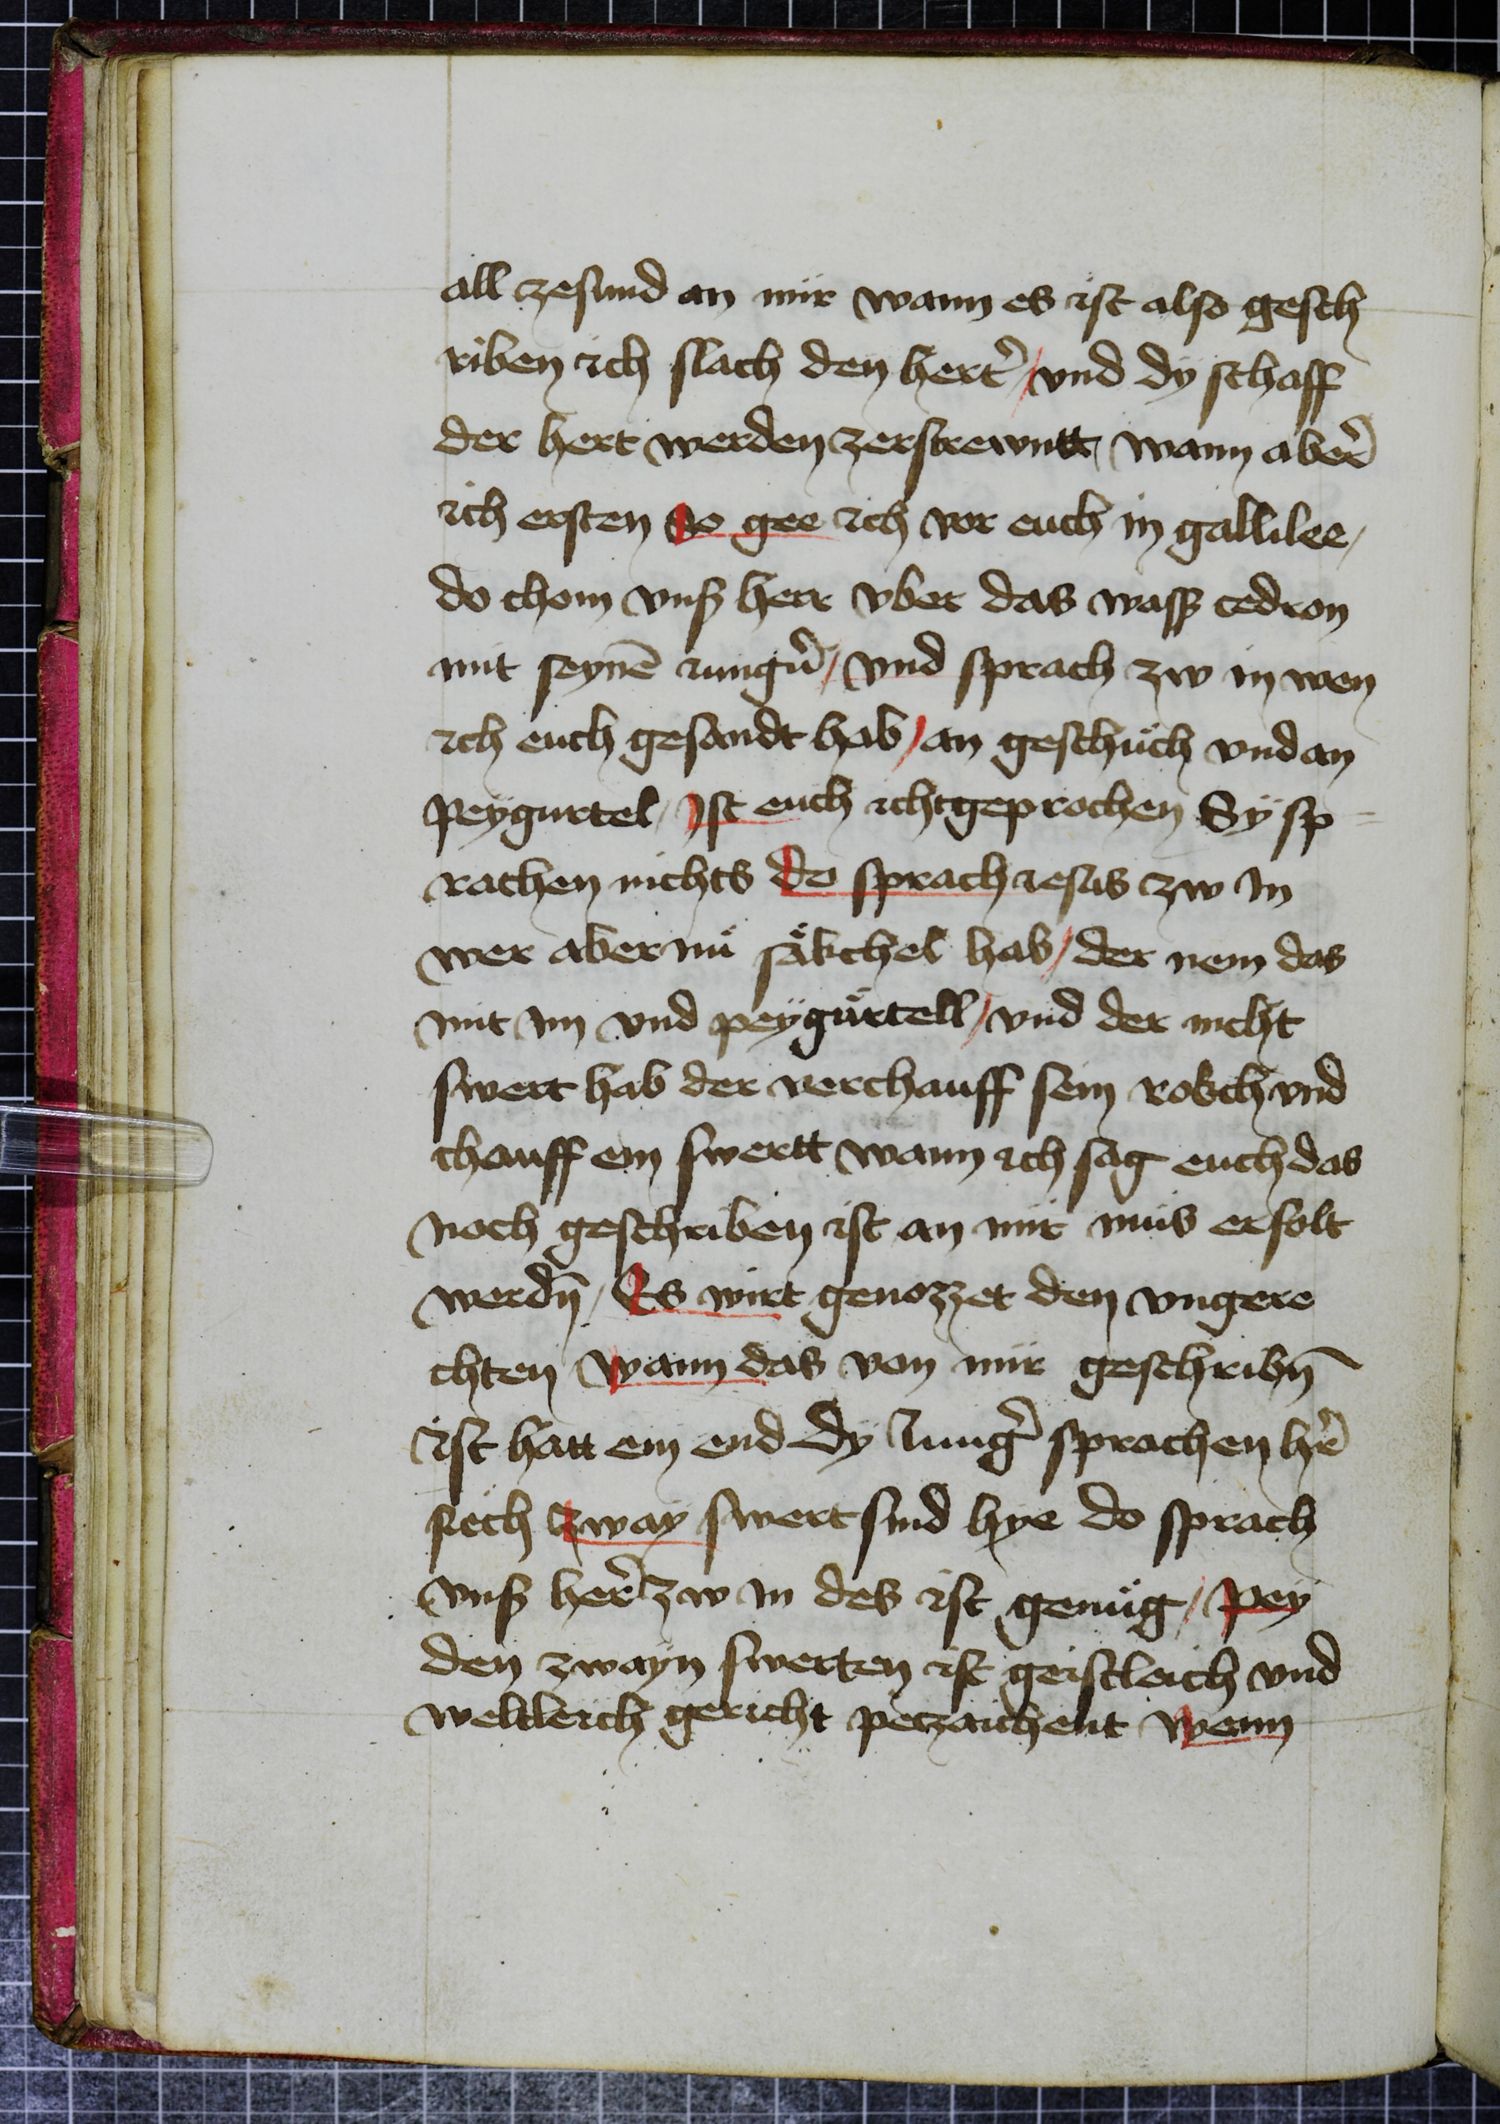 all zesund an mir wann es ist also gesch
riben ich slach den herter̾ / vnd dy schaff
der hert werden zerstrewntt wann aber̾
ich ersten So gee ich vor euch in gallilee /
do chom vnß herr vber das wasß cedron
mit seynē iungn̾ / vnd sprach zw in wen
ich euch gesandt hab / an geschüch vnd an
peygurtel / Ist euch icht geprochen Sy sp=
rachen nichts do sprach iesus zw In
wer aber nů säkchel hab / der nem das
mit Im vnd peygürtell / vnd der nicht
swert hab der verchauff sein rokch vnd
chauff ein swertt wann ich sag euch das
noch geschriben ist an mir mus erfolt
werdn̄ / Es wirt genozzet den vngere
chten wann das von mir geschribn̄
ist hatt ein end dy Iungr̾ sprachen hr̾
siech zway swert sind hye do sprach
vnß her̾ zw In des ist genüg / pey
den zwayn swerten ist geistleich vnd
weltleich gericht peczaichent wenn